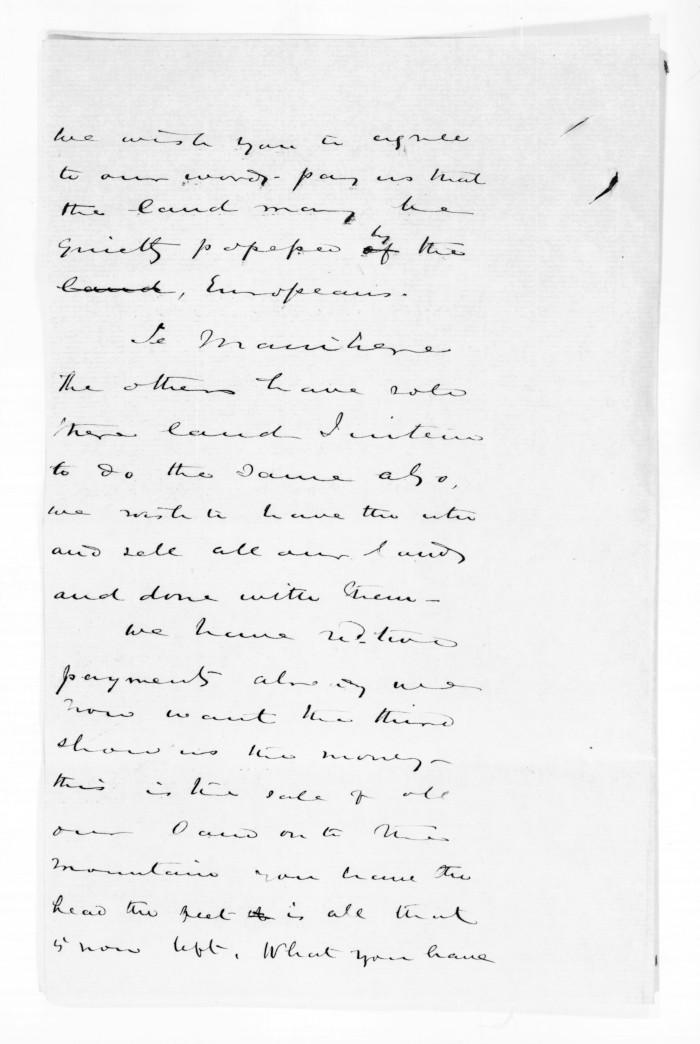 We wish you to agree
to our words - pay us that
the land may be
quietly possessed by of the
land, Europeans.
Te Manihera
The others have sold
there land I intend
to do the same also,
we wish to have the utu
and sell all our lands
and done with them -
We have recd. two
payments already we
now want the third
show us the money -
this is the sale of all
our land on to the
mountain you have the
head the feet is all that
is now left. What you have